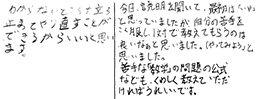 わからないところで立ち
止まってやり直すことが
できるからいいと思い
ます。
今日、説明を聞いて、最初は「いい」
と思っていましたが自分の苦手を
こく服し、1対1で教えてもらうのは
良いなあと思いました。(やってみよう)と
思いました。
苦手な「数学」の問題の公式
なども、くわしく教えていただ
ければうれしいです。